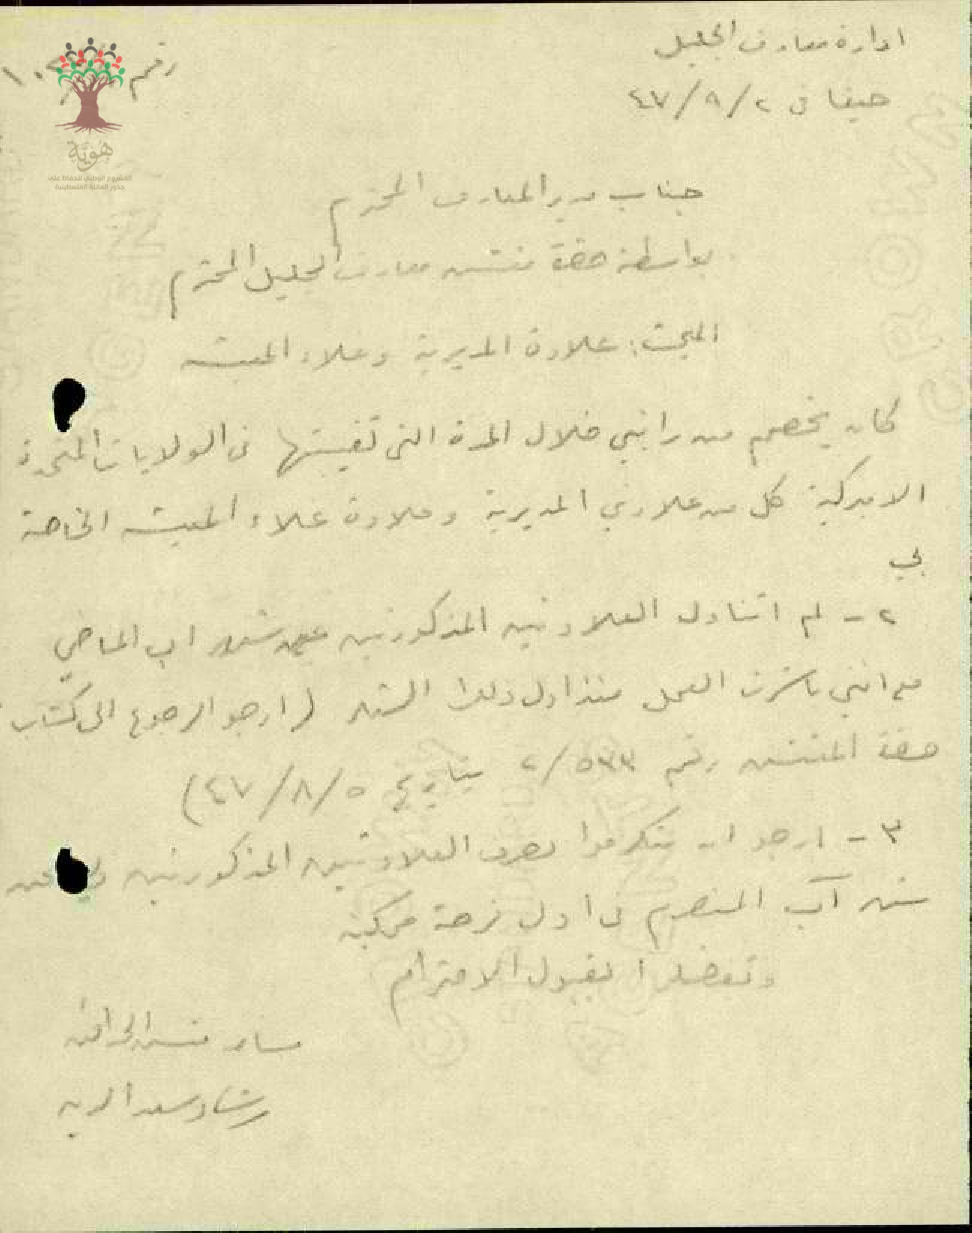 ادارة معارف الجليل
رقم
حيفا في ٢/٩/٤٧
هوية
المشروع الوطني للحفاظ على
جذور العائلة الفلسطينية
جناب مدير المعارف المحترم
بواسطة حضرة مفتش معارف الجليل المحترم
المبحث: علاوة المديرية وعلاء المعيشة
كان يخصم من راتبي خلال المدة التي تغيبتها في الولايات المتحدة
الاميركية كل من علاوتي المديرية وعلاوة غلاء المعيشة الخاصة
بي
٢ - لم اتناول العلاوتين المذكورتين عن شهر اب الماضي
مع انني باشرت العمل منذ اول ذلك الشهر (ارجو الرجوع الى كتاب
حضرة المفتش رقم ٢/٥٣٣ بتاريخ ٥/٨/٤٧)
٣ - ارجو ان تتكرموا بصرف العلاوتين المذكورتين لي عن
شهر آب المنصرم في اول فرصة ممكنة
وتفضلوا بقبول الاحترام
مساعد مفتش
رشاد سعد الدين